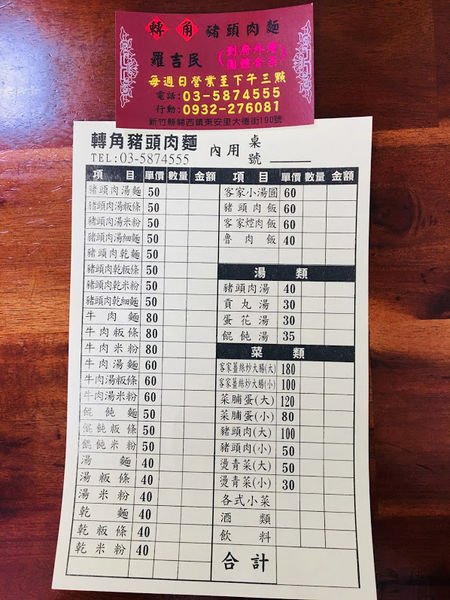 轉角 豬頭肉麵
羅吉民 (到府外燴 團體合菜)
每週日營業至下午三點
電話:03-5874555
行動:0932-276081
新竹縣關西鎮東安里大德街190號
轉角豬頭肉麵
TEL:03-5874555
內用 桌號
項目 單價 數量 金額
豬頭肉湯麵 50
豬頭肉湯粄條 50
豬頭肉湯米粉 50
豬頭肉湯細麵 50
豬頭肉乾麵 50
豬頭肉乾粄條 50
豬頭肉乾米粉 50
豬頭肉乾細麵 50
牛肉麵 80
牛肉粄條 80
牛肉米粉 80
牛肉湯麵 60
牛肉湯粄條 60
牛肉湯米粉 60
餛飩麵 50
餛飩粄條 50
餛飩米粉 50
湯麵 40
湯粄條 40
湯米粉 40
乾麵 40
乾粄條 40
乾米粉 40
項目 單價 數量 金額
客家小湯圓 60
豬頭肉飯 60
客家焢肉飯 60
魯肉飯 40
湯類
豬頭肉湯 40
貢丸湯 30
蛋花湯 30
餛飩湯 35
菜類
客家薑絲炒大腸(大) 180
客家薑絲炒大腸(小) 100
菜脯蛋(大) 120
菜脯蛋(小) 80
豬頭肉(大) 100
豬頭肉(小) 50
燙青菜(大) 50
燙青菜(小) 30
各式小菜
酒類
飲料
合計